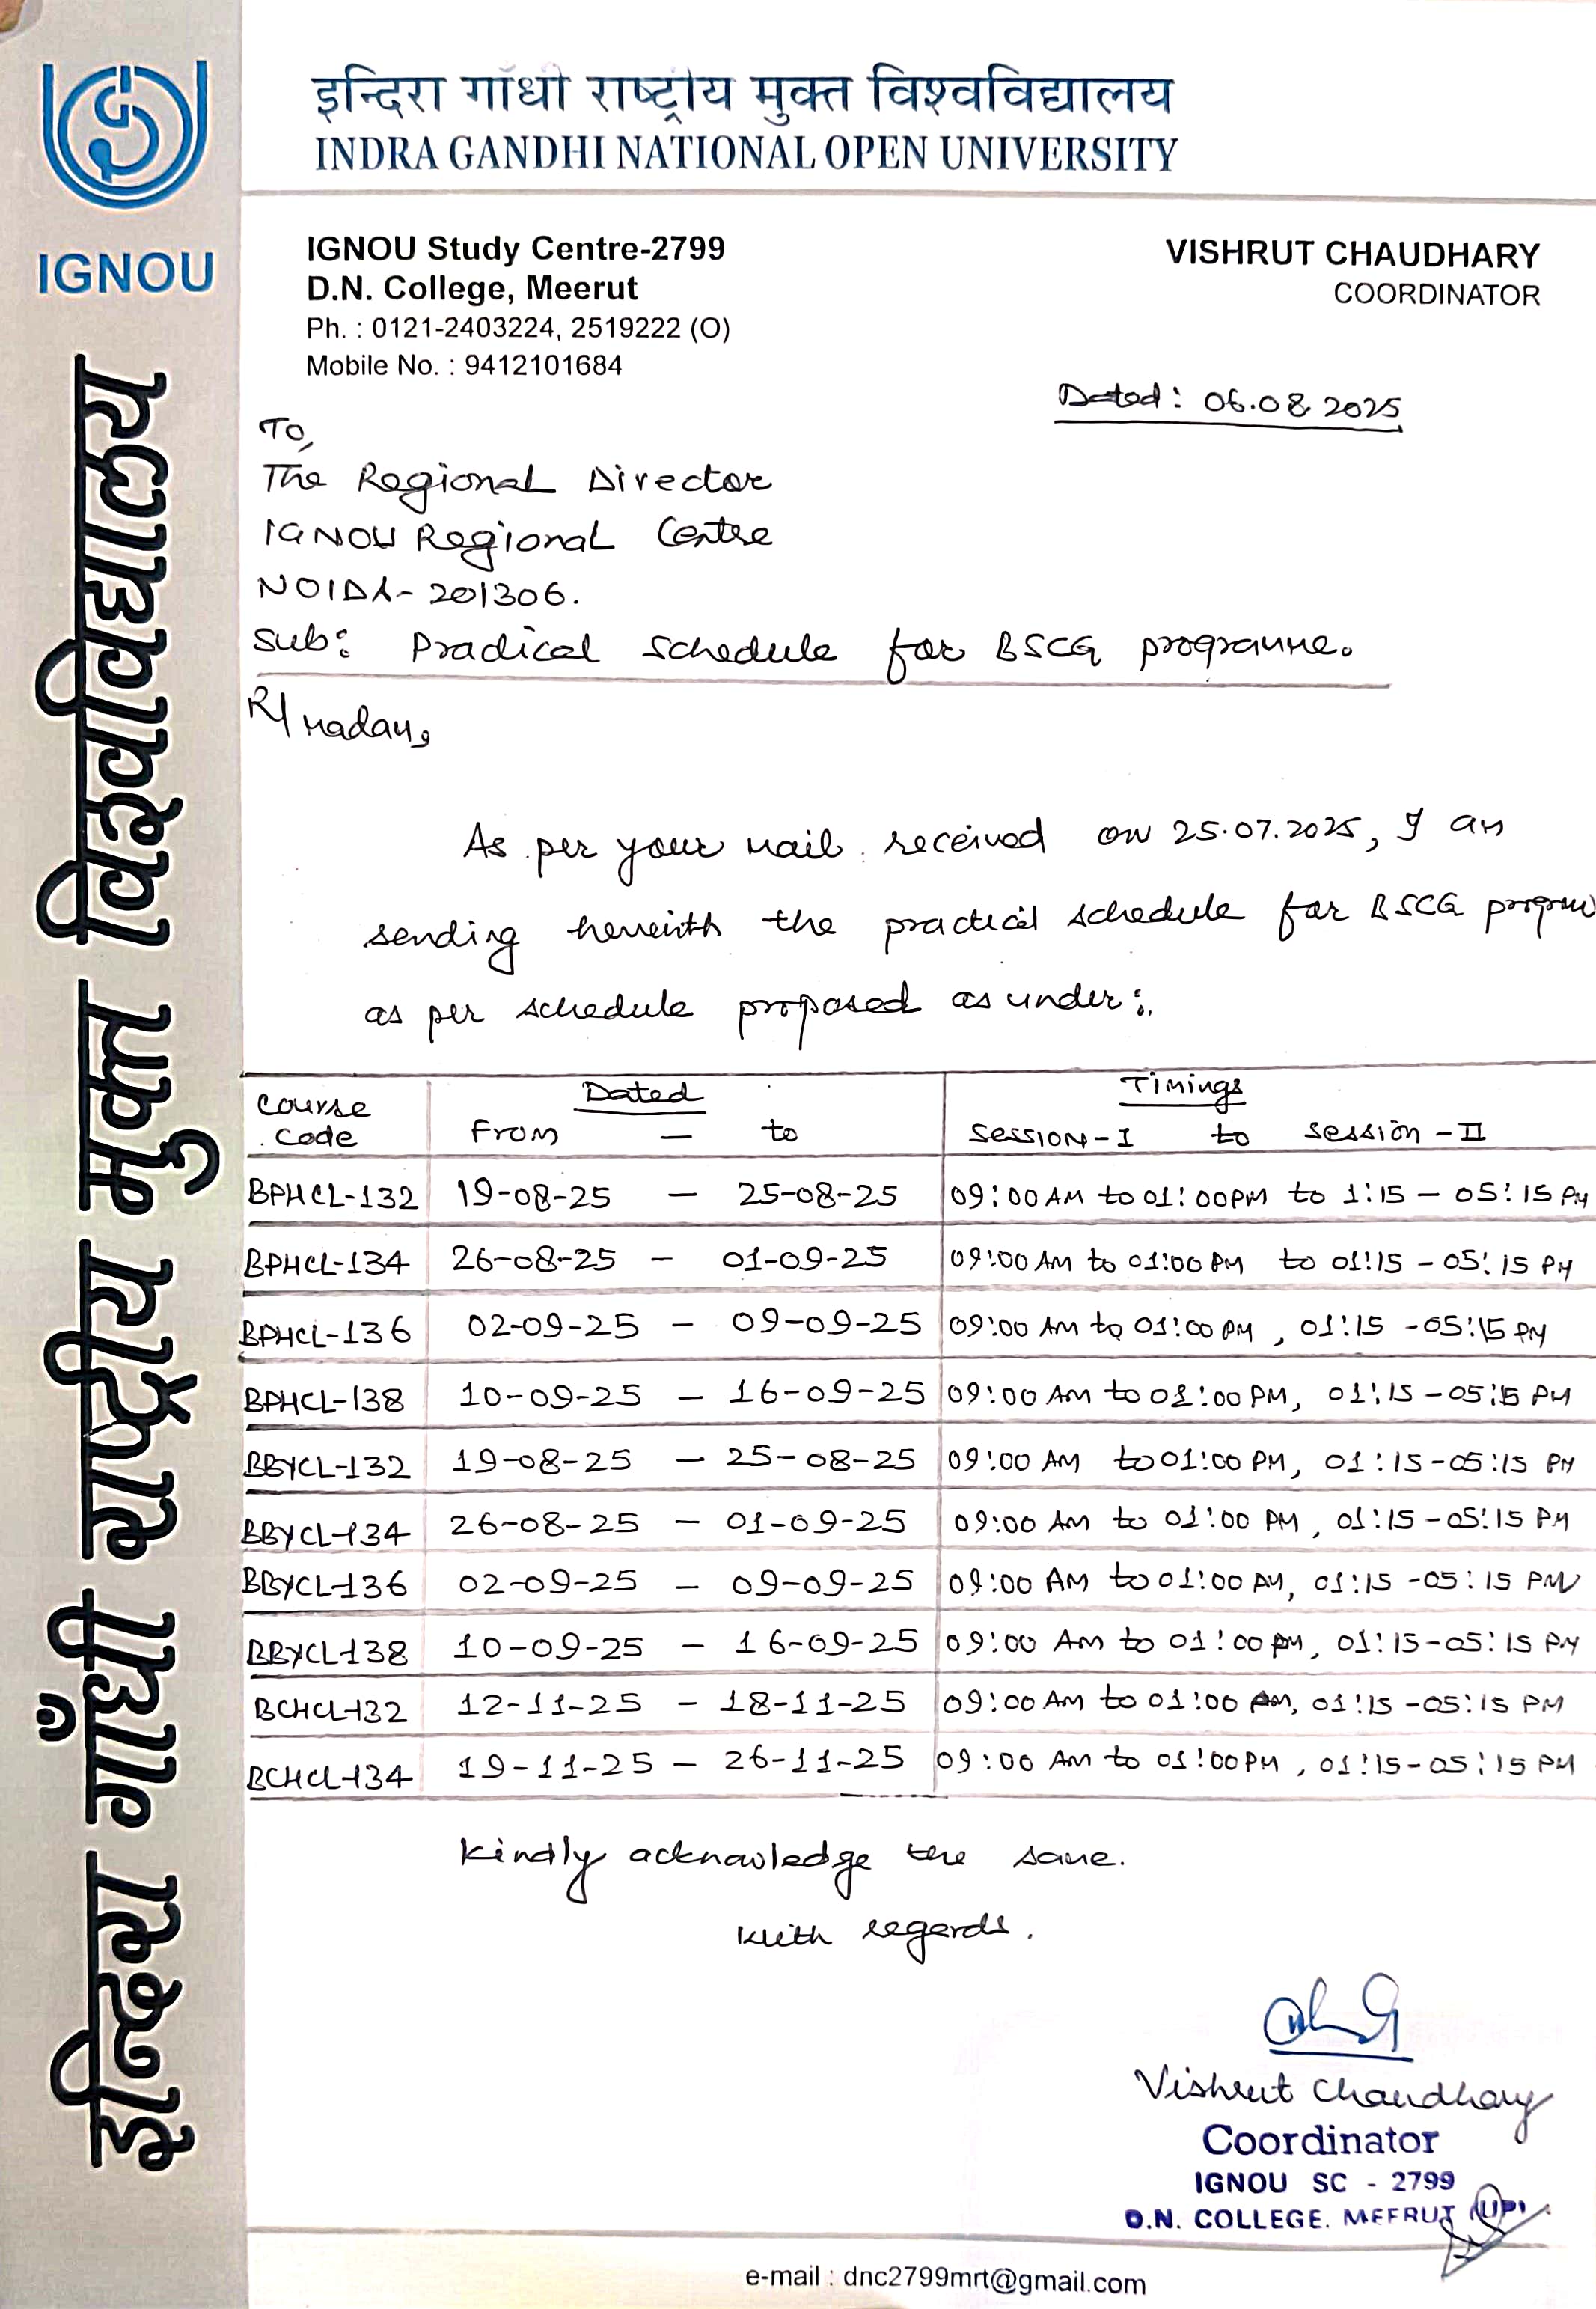 इन्दिरा गाँधी राष्ट्रीय मुक्त विश्वविद्यालय
INDRA GANDHI NATIONAL OPEN UNIVERSITY
IGNOU
इन्दिरा गाँधी राष्ट्रीय मुक्त विश्वविद्यालय
IGNOU Study Centre-2799
D.N. College, Meerut
Ph. : 0121-2403224, 2519222 (O)
Mobile No. : 9412101684
VISHRUT CHAUDHARY
COORDINATOR
Dated: 06.08.2025
To,
The Regional Director
IGNOU Regional Centre
NOIDA- 201306.
Sub: Practical schedule for BSCG programme.
R/Madam,
As per your mail received on 25.07.2025, I am
sending herewith the practical schedule for BSCG program
as per schedule proposed as under:
Course Code Dated From — to Timings Session-I to Session-II
BPHCL-132 19-08-25 — 25-08-25 09:00 AM to 01:00 PM to 1:15 – 05:15 PM
BPHCL-134 26-08-25 — 01-09-25 09:00 AM to 01:00 PM to 01:15 – 05:15 PM
BPHCL-136 02-09-25 – 09-09-25 09:00 AM to 01:00 PM, 01:15 -05:15 PM
BPHCL-138 10-09-25 – 16-09-25 09:00 AM to 01:00 PM, 01:15 – 05:15 PM
BBYCL-132 19-08-25 – 25-08-25 09:00 AM to 01:00 PM, 01:15-05:15 PM
BBYCL-134 26-08-25 – 01-09-25 09:00 AM to 01:00 PM, 01:15-05:15 PM
BBYCL-136 02-09-25 – 09-09-25 09:00 AM to 01:00 PM, 01:15 -05:15 PM
BBYCL-138 10-09-25 – 16-09-25 09:00 AM to 01:00 PM, 01:15-05:15 PM
BCHCL-132 12-11-25 – 18-11-25 09:00 AM to 01:00 PM, 01:15 -05:15 PM
BCHCL-134 19-11-25 – 26-11-25 09:00 AM to 01:00 PM, 01:15-05:15 PM
Kindly acknowledge the same.
With regards.
Vishrut Chaudhary
Coordinator
IGNOU SC - 2799
D.N. COLLEGE. MEERUT (UP)
e-mail : dnc2799mrt@gmail.com